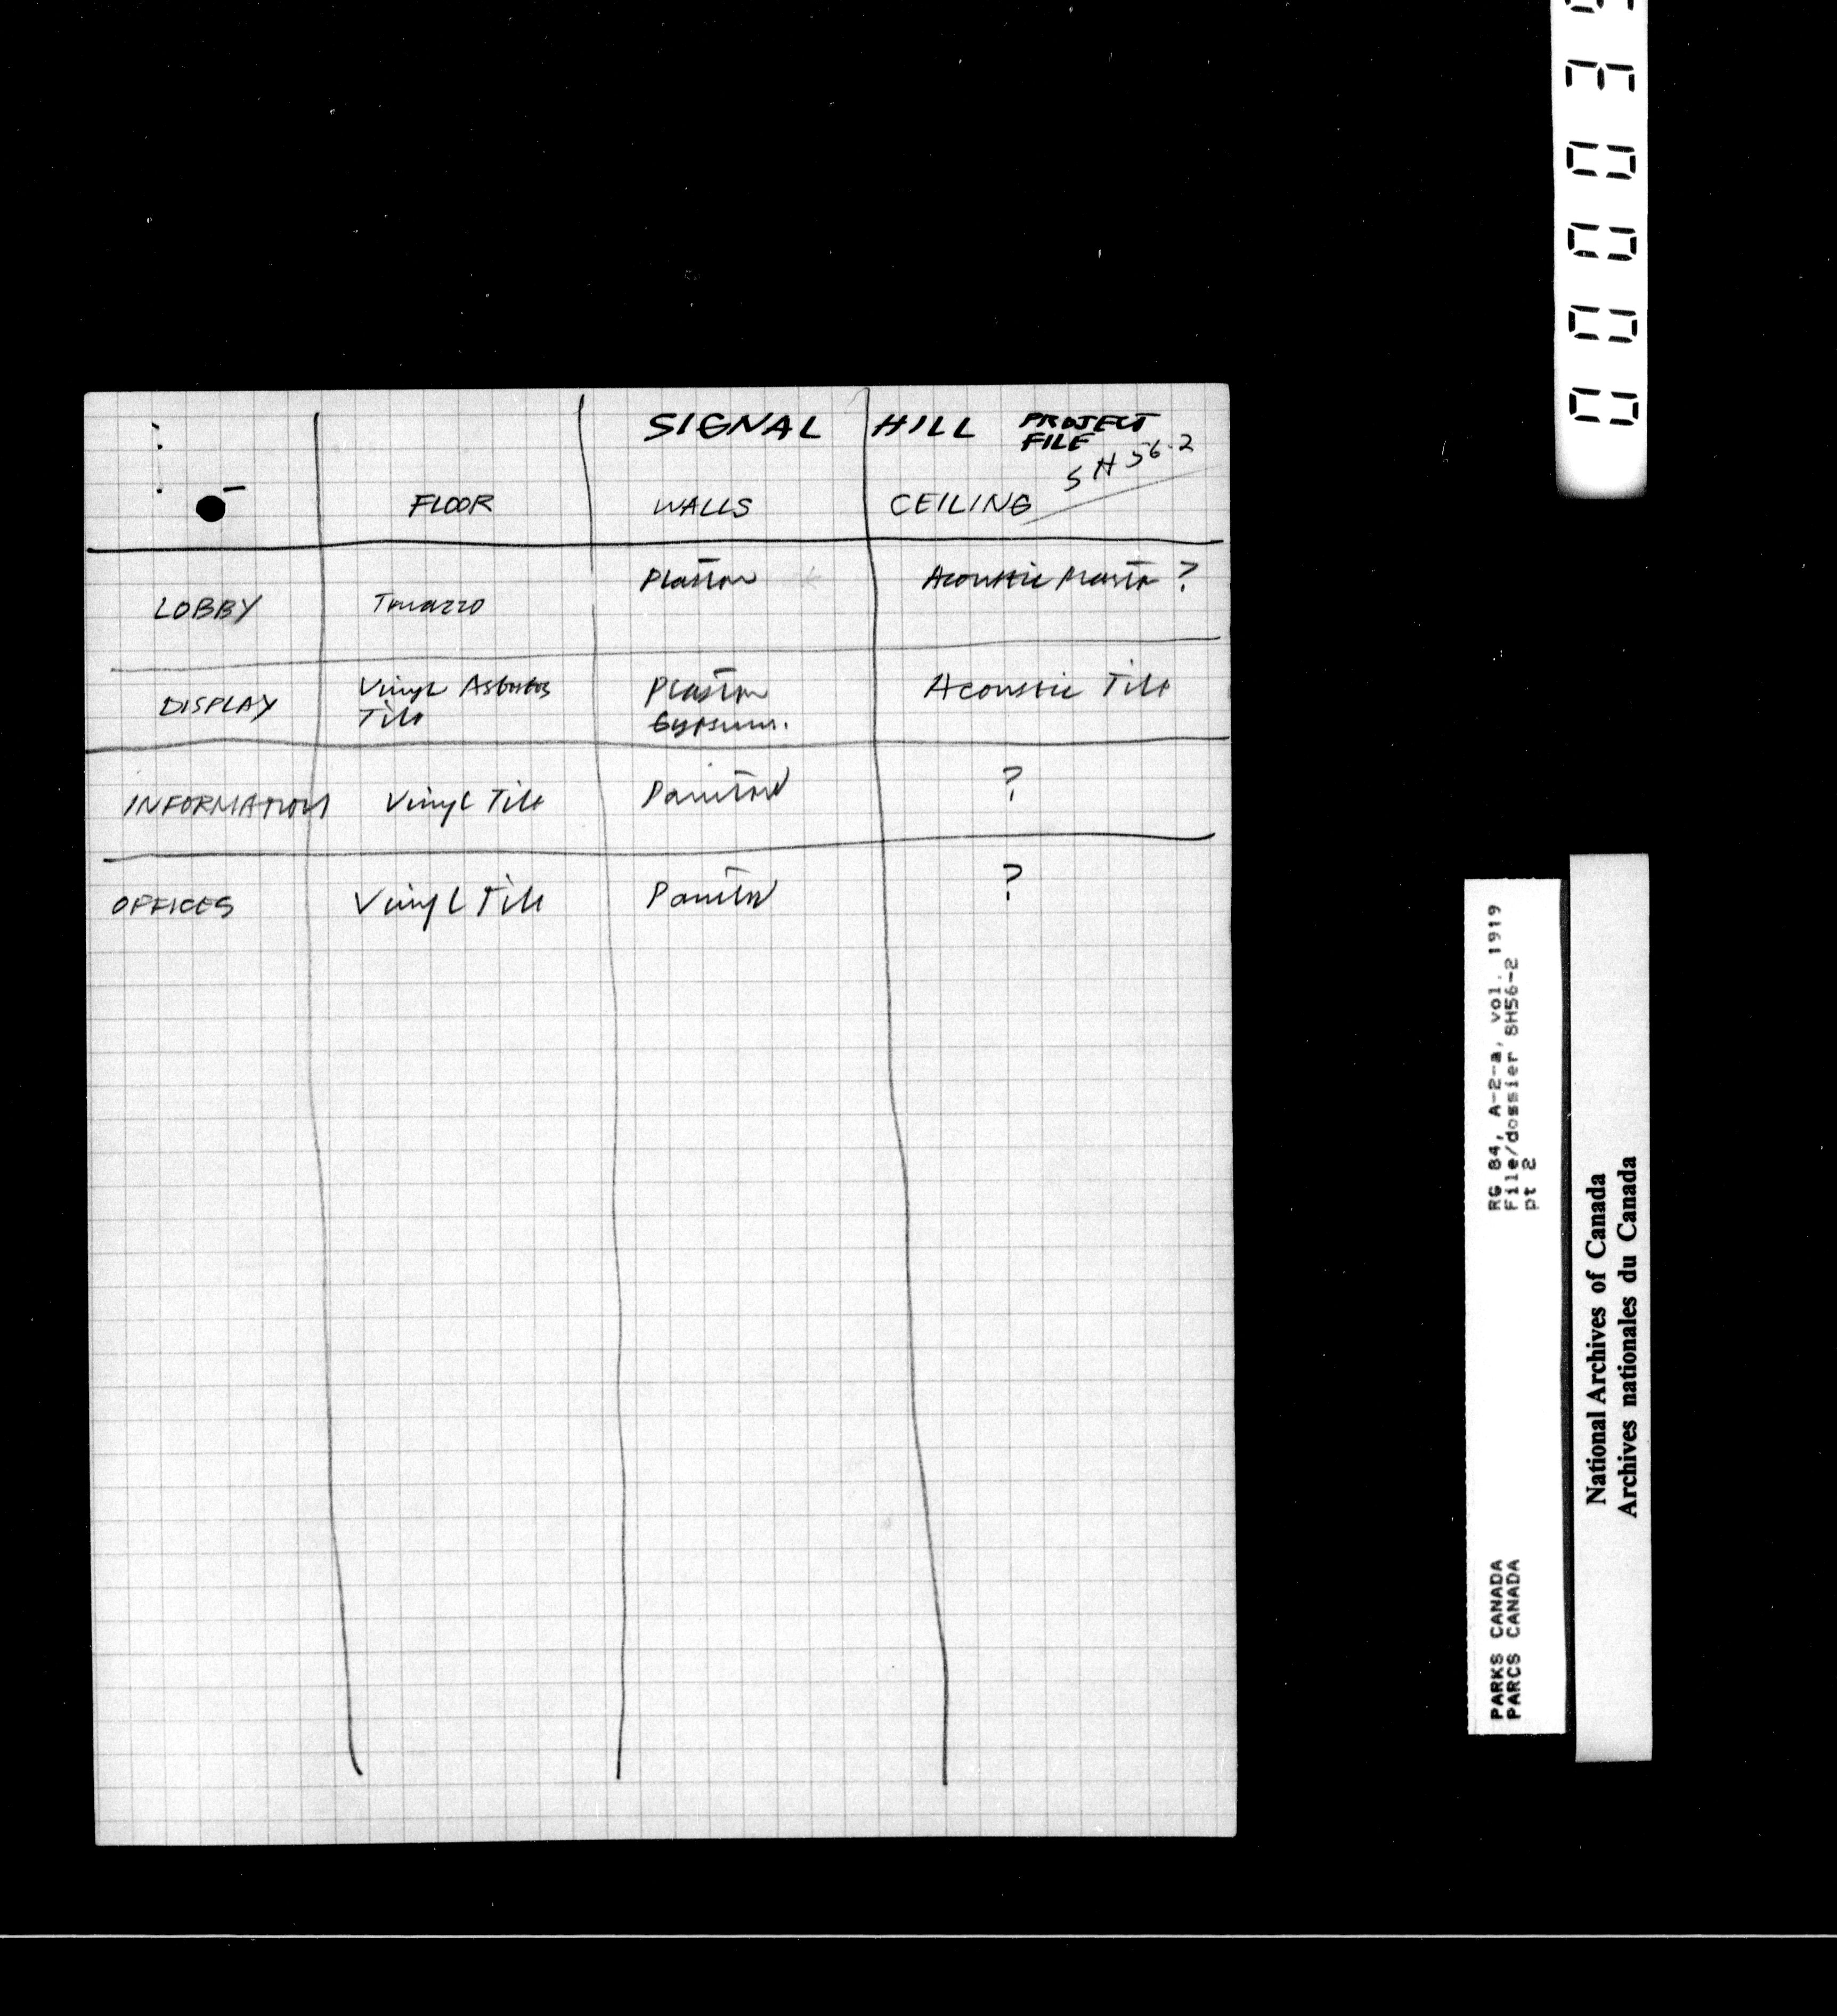 SIGNAL HILL PROJECT
FILE
SH 56-2
FLOOR WALLS CEILING
LOBBY Terrazzo Plaster Acoustic Plaster ?
DISPLAY Vinyl Asbestos Plaster Acoustic Tile
Tile Gypsum.
INFORMATION Vinyl Tile ?
OFFICES Vinyl Tile ?
RG 84, A-2-a, vol. 1919
File/dossier SH56-2
pt 2
PARKS CANADA
PARCS CANADA
National Archives of Canada
Archives nationales du Canada